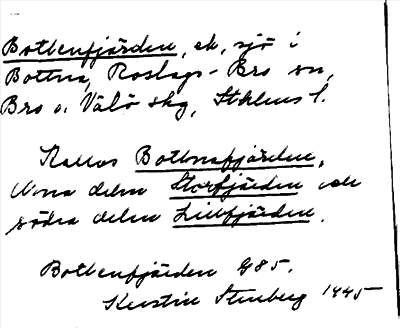 Bottenfjärden, ek, sjö i
Bottna, Roslags-Bro sn,
Bro o. Vätö skg, Sthlms l.
Kallas Bottnafjärden,
Norra delen Storfjärden och
södra delen Lillfjärden.
Bottenfjärden GS5.
Kerstin Stenberg 1945